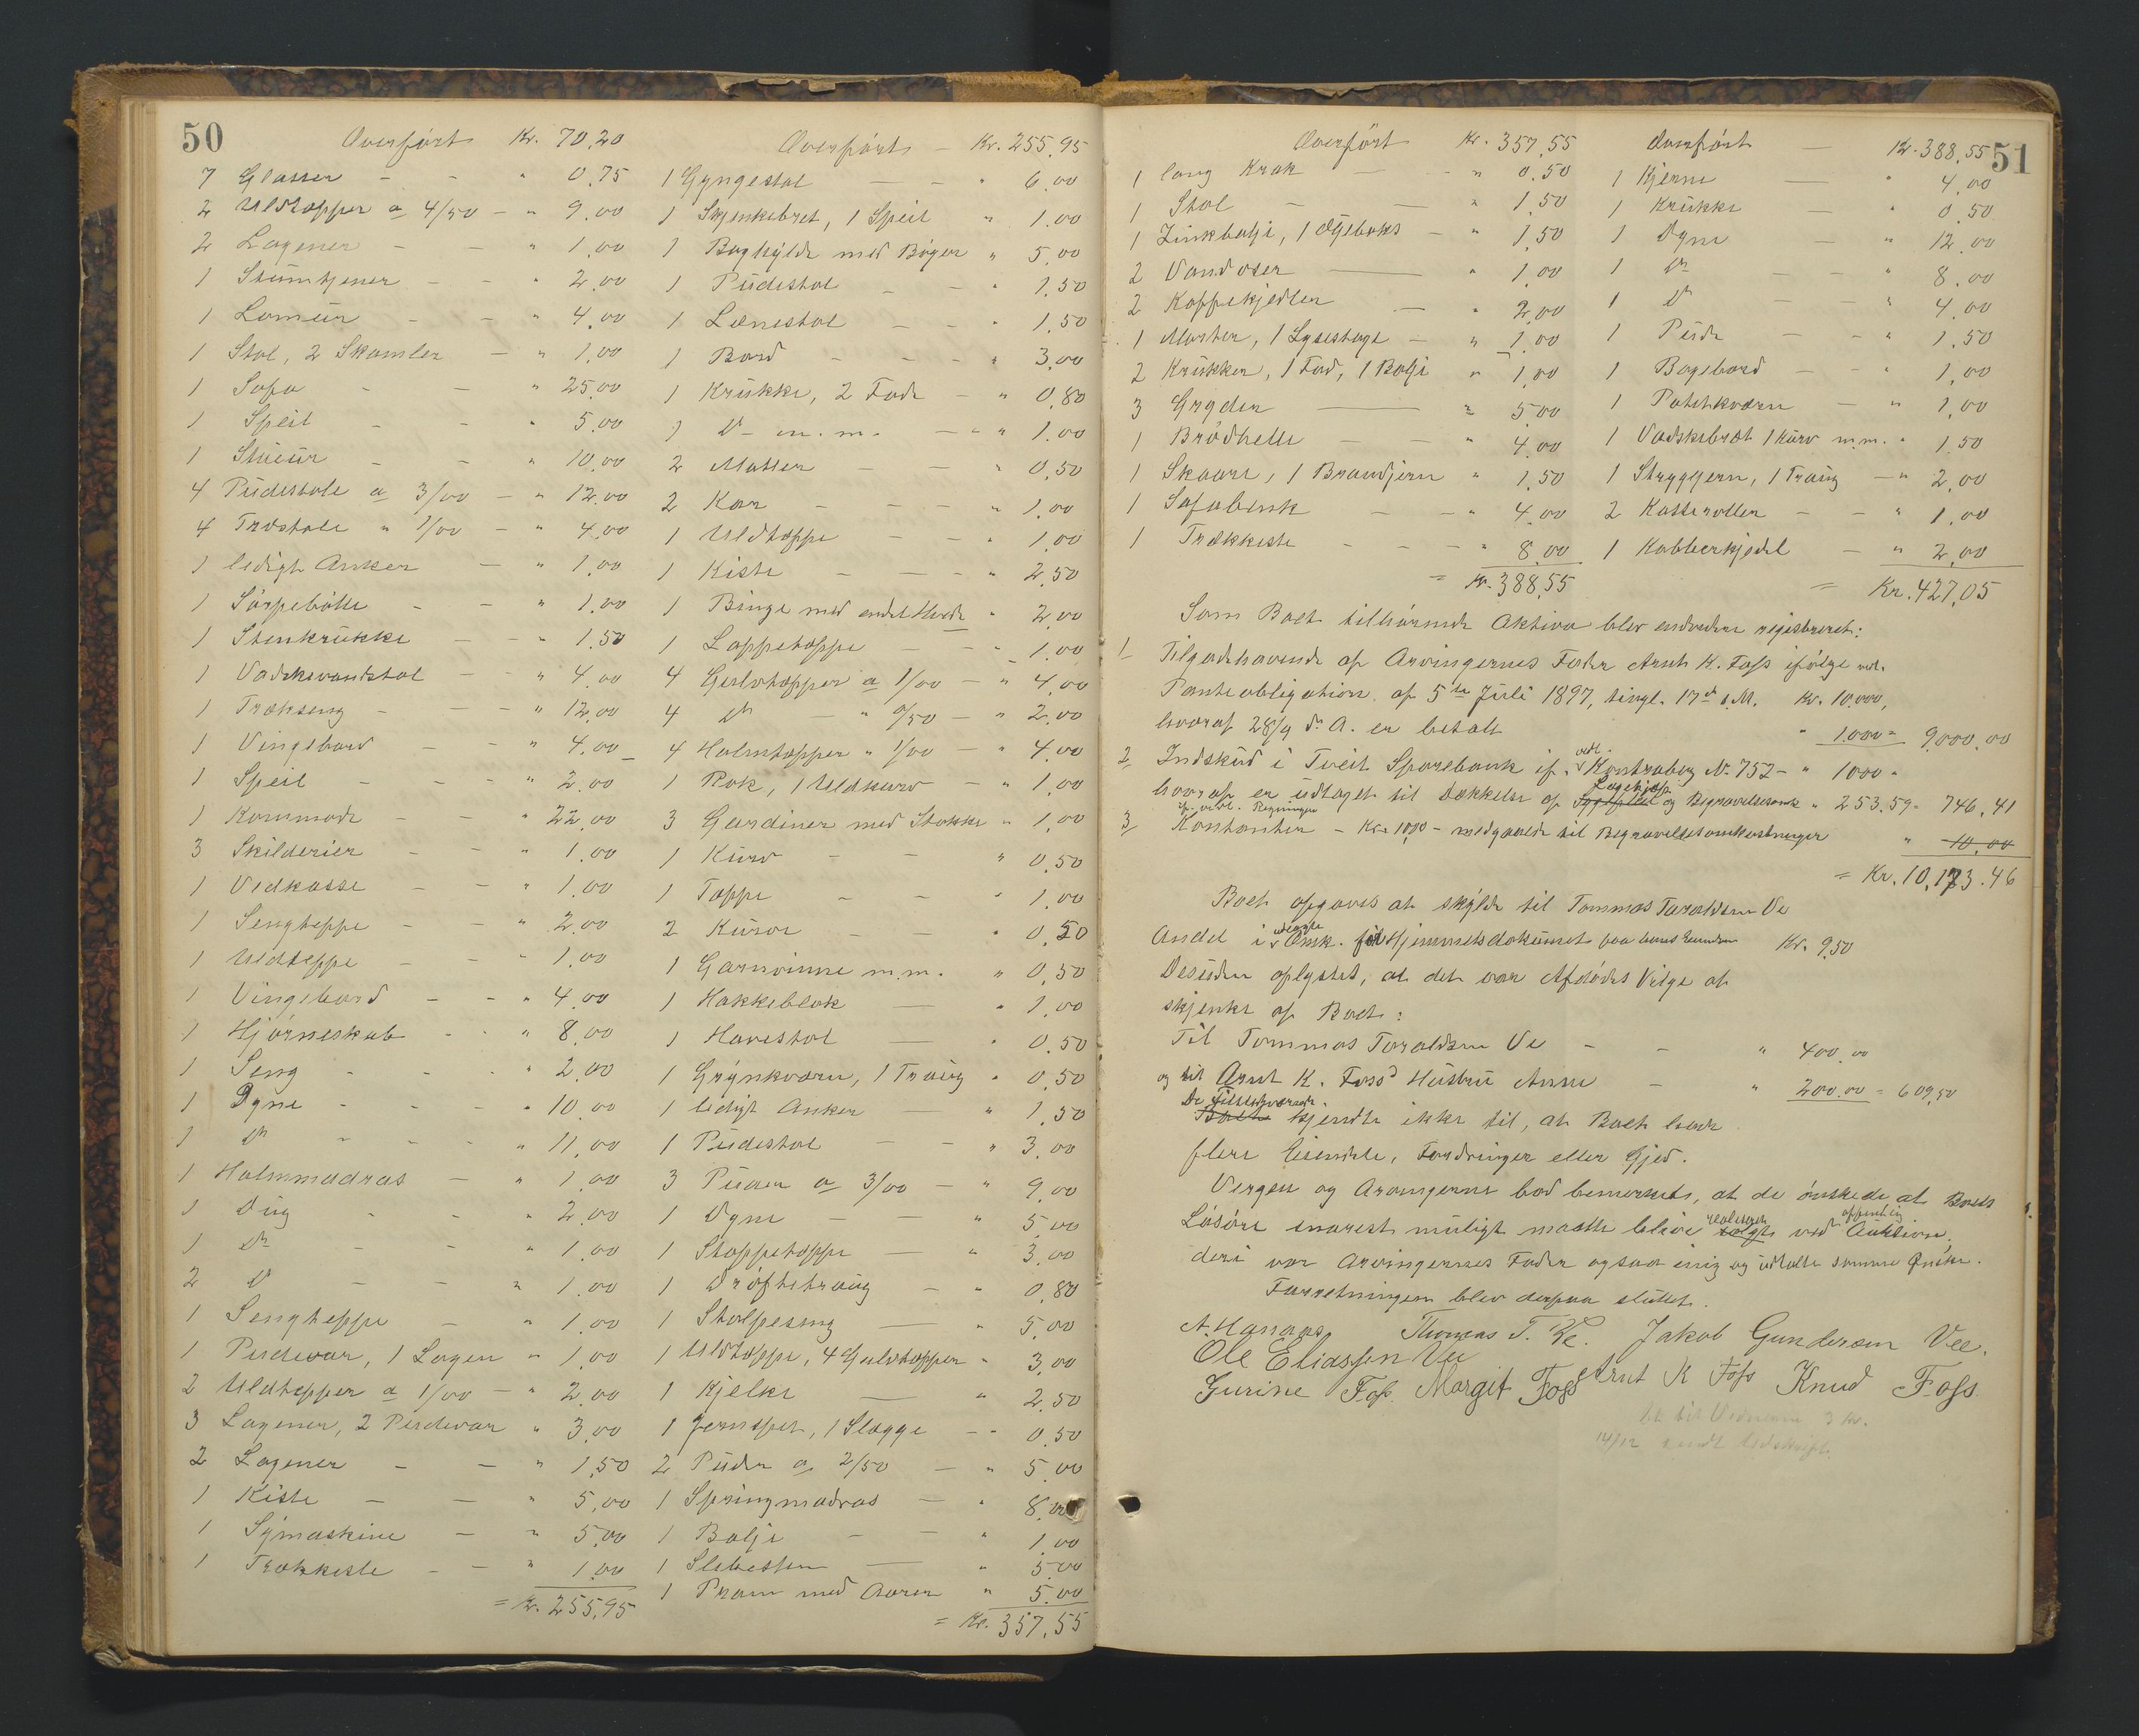 50
Overført Kr. 70.20
7 Glasser - - " 0.75
2 Uldtæpper a 4/50 - " 9.00
2 Lagener - - " 1.00
1 Stumtjener - - " 2.00
1 Lomeur - - " 4.00
1 Stol, 2 Skamler - " 1.00
1 Sofa - - " 25.00
1 Speil - - " 5.00
1 Stueur - - " 10.00
4 Pudestole a 3/00 - " 12.00
4 Træstole " 1/00 - " 4.00
1 ledigt Anker - " 1.00
1 Sørpebøtte - - " 1.00
1 Stenkrukke - - " 1.50
1 Vadskevandstol - " 4.00
1 Trækseng - - " 12.00
1 Vingebord - - " 4.00
1 Speil - - " 2.00
1 Kommode - - " 22.00
3 Skilderier - - " 1.00
1 Vedkasse - - " 1.00
1 Sengteppe - - " 2.00
1 Uldteppe - - " 1.00
1 Vingebord - - " 4.00
1 Hjørneskab - - " 8.00
1 Seng - - " 2.00
1 Dyne - - " 10.00
1 Do - - " 11.00
1 Halmmadras - " 1.00
1 Dug - - " 2.00
1 Do - - " 1.00
2 D - - " 1.00
1 Sengteppe - " 1.00
1 Pudevar, 1 Lagen " 1.00
2 Uldtepper a 1/00 - " 2.00
3 Lagener, 2 Pudevar " 3.00
2 Lagener - - " 1.50
1 Kiste - - " 5.00
1 Symaskine - " 5.00
1 Trækkiste - - " 1.00
= Kr. 255.95
Overført - Kr. 255.95
1 Gyngestol - - " 6.00
1 Skjenkebret, 1 Speil " 1.00
1 Boghylde med Bøger " 5.00
1 Pudestol - - " 1.50
1 Lænestol - - " 1.50
1 Bord - - " 3.00
1 Krukke, 2 Fade - " 0.80
1 D - m.m. - " 1.00
2 Matter - - " 0.50
2 Kar - - " 1.00
1 Uldtæppe - - " 1.00
1 Kiste - - " 2.50
1 Binge med endel Hvede " 2.00
1 Lappetæppe - - " 1.00
4 Gulvtæpper a 1/00 - " 4.00
4 Do - " 0/50 - " 2.00
4 Halmtæpper " 1/00 - " 4.00
1 Rok, 1 Uldkurv - " 1.00
3 Gardiner med Stokke " 1.00
1 Kurv - - " 0.50
1 Tæppe - - " 1.00
2 Kurve - - " 0.50
1 Garnvinne m.m. " 0.50
1 Hakkeblok - " 1.00
1 Havestol - " 0.50
1 Grynkværn, 1 Traug " 0.50
1 ledigt Anker - " 1.50
1 Pudestol - - " 3.00
3 Puder a 3/00 - " 9.00
1 Dyne - - " 5.00
1 Stoppetæppe - " 3.00
1 Drøftetraug - " 0.80
1 Stolpeseng - " 5.00
1 Uldtæppe, 4 Gulvtæpper " 3.00
1 Kjelke - " 2.50
1 Jernspet, 1 Slægge - " 0.50
2 Puder a 2/50 - " 5.00
1 Springmadras - " 8.00
1 Balje - - " 1.00
1 Slibesten - " 5.00
1 Pram med Aarer " 5.00
= Kr. 357.55
51
Overført Kr. 357.55
1 lang Krak - - " 0.50
1 Stol - - " 1.50
1 Zinkbalje, 1 Øseboks - " 1.50
2 Vandøser - " 1.00
2 Kaffekjedler - " 2.00
1 Morter, 1 Lysestage - " 1.00
2 Krukker, 1 Fad, 1 Balje " 1.00
3 Gryder - " 5.00
1 Brødhelle - - " 4.00
1 Skaare, 1 Brandjern " 1.50
1 Sofabenk - - " 4.00
1 Trækkiste - - " 8.00
= Kr. 388.55
Overført - Kr. 388.55
1 Kjerne - " 4.00
1 Krukke - " 0.50
1 Dyne - " 12.00
1 Do - - " 8.00
1 Do - - " 4.00
1 Pude - - " 1.50
1 Bagebord - - " 1.00
1 Potetkværn - " 1.00
1 Vadskebræt 1 Kurv m.m. " 1.50
1 Strygejern, 1 Traug - " 2.00
2 Kasseroller - - " 1.00
1 Kobberkjedel - " 2.00
= Kr. 427.05
Som Boet tilhørende Aktiva blev endvidere registreret:
1. Tilgodehavende af Arvingernes Fader Arnt K. Foss ifølge vedl.
Panteobligation af 5te Juli 1897, tingl. 17d s.M. Kr. 10.000,
hvoraf 28/9 d. A. er betalt " 1.000 = 9.000.00
2. Indskud i Tveit Sparebank if. vedl. Kontrabog No. 752 - " 1000 "
hvoraf er udtaget til Dækkelse af Lægehjælp og Begravelsesomk " 253.59 = 746.41
if. vedl. Regninger
3. Kontanter - Kr. 10.00 - medgaaede til Begravelsesomkostninger " 10.00
= Kr. 10.173.46
Boet opgaves at skylde til Tommas Taraldsen Ve
Andel i Omk. for Hjemmelsdokument paa hans Eiendom Kr. 9.50
Desuden oplystes, at det var Afdødes Vilje at
skjenke af Boet:
Til Tommas Taraldsen Ve - - " 400.00
og til Arnt K. Foss' Hustru Anne - " 200.00 = 609.50
De Tilstedeværende
Boet kjendte ikke til, at Boet havde
flere Eiendele, Fordringer eller Gjed.
Vergen og Arvingerne bad bemerket, at de ønskede at Boets
Løsøre snarest muligt maatte blive realiseret solgt ved offentlig Auktion,
deri var Arvingernes Fader ogsaa enig og udtalte samme Ønske.
Forretningen blev derpaa sluttet.
A. Hanaas Thomas T. Ve. Jakob Gundersen Vee.
Ole Eliassen Vee
Gurine Foss. Margit Foss Arnt K Foss Knud Foss.
14/12 sendt Udskrift